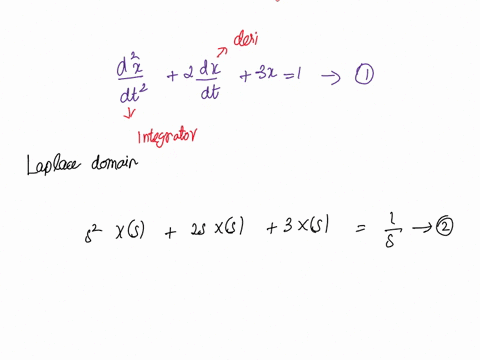 deri
d²x/dt² + 2 dx/dt + 3x = 1 → ①
Integrator
Laplace domain
s² X(s) + 2s X(s) + 3 X(s) = 1/s → ②